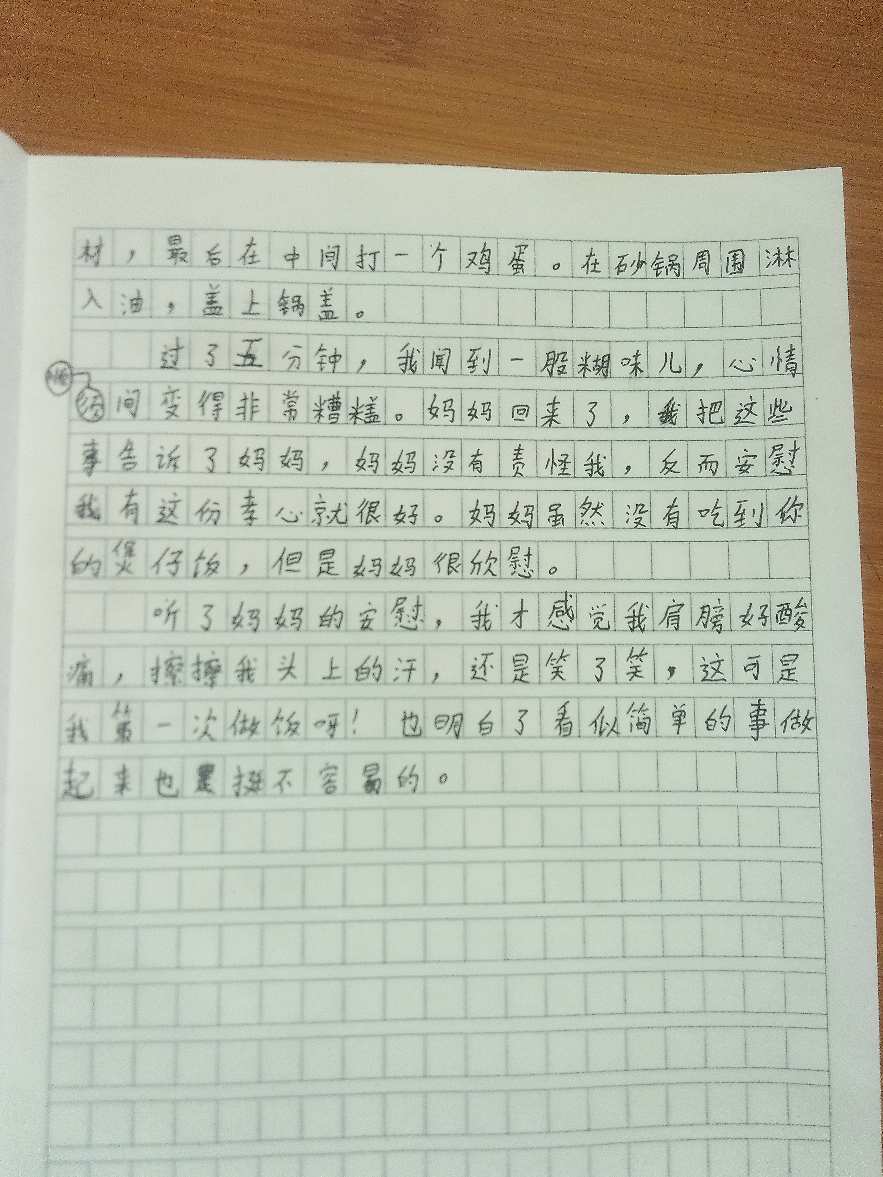 材，最后在中间打一个鸡蛋。在砂锅周围淋
入油，盖上锅盖。
过了五分钟，我闻到一股糊味儿，心情
间变得非常糟糕。妈妈回来了，我把这些
事告诉了妈妈，妈妈没有责怪我，反而安慰
我有这份孝心就很好。妈妈虽然没有吃到你
的煲仔饭，但是妈妈很欣慰。
听了妈妈的安慰，我才感觉我肩膀好酸
痛，擦擦我头上的汗，还是笑了笑，这可是
我第一次做饭呀！也明白了看似简单的事做
起来也是挺不容易的。